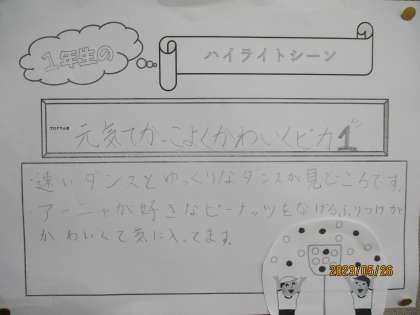 1年生の
ハイライトシーン
元気でかっこよくかわいくピカ1
・速いダンスとゆっくりなダンスが見どころです。
・アーニャが好きなピーナッツをなげるふりつけが
かわいくて気に入ってます。
2023/05/26